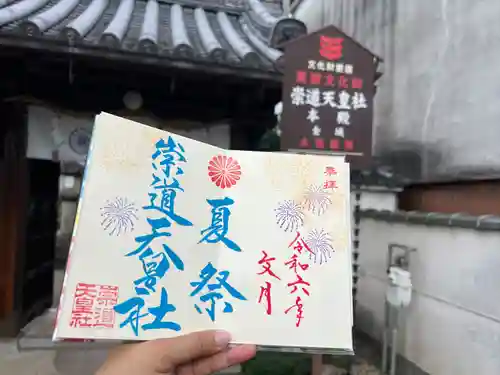 重要文化財
崇道天皇社
本殿
全域
奉拝
夏祭
令和六年
文月
崇道天皇社
崇道
天皇社